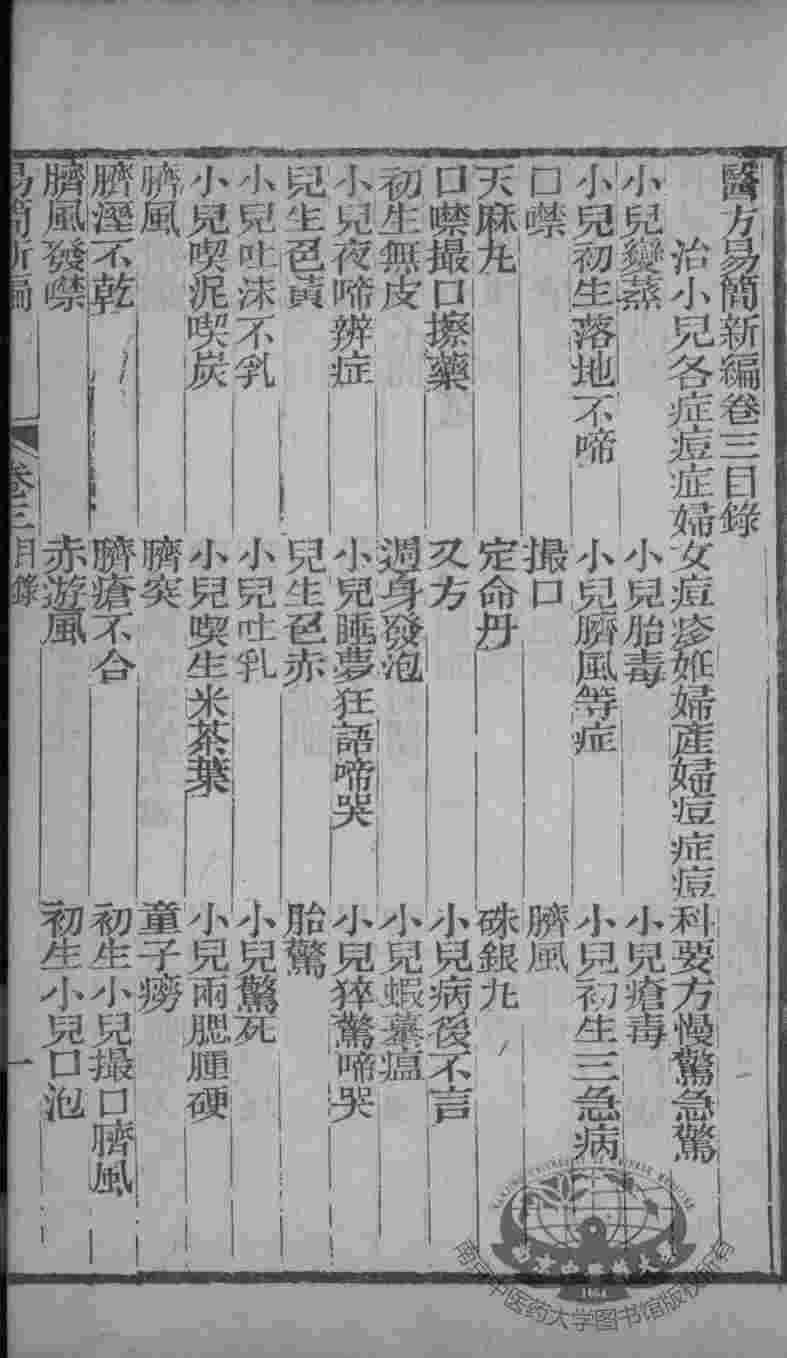 醫方易簡新編卷三目錄
治小兒各症痘症婦女痘疹姙婦產婦痘症痘科要方慢驚急驚
小兒變蒸　小兒胎毒　小兒瘡毒
小兒初生落地不啼　小兒臍風等症　小兒初生三急病
口噤　撮口　臍風
天麻丸　定命丹　硃銀丸
口噤撮口擦藥　又方　小兒病後不言
初生無皮　週身發泡　小兒蝦蟇瘟
小兒夜啼辨症　小兒睡夢狂語啼哭　小兒猝驚啼哭
兒生色黃　兒生色赤　胎驚
小兒吐沫不乳　小兒吐乳　小兒驚死
小兒喫泥喫炭　小兒喫生米茶葉　小兒兩腮腫硬
臍風　臍突　童子癆
臍溼不乾　臍瘡不合　初生小兒撮口臍風
臍風發噤　赤遊風　初生小兒口泡
易簡新編　卷三目錄　一
南京中医药大学图书馆版权所有
NANJING UNIVERSITY OF CHINESE MEDICINE
1954